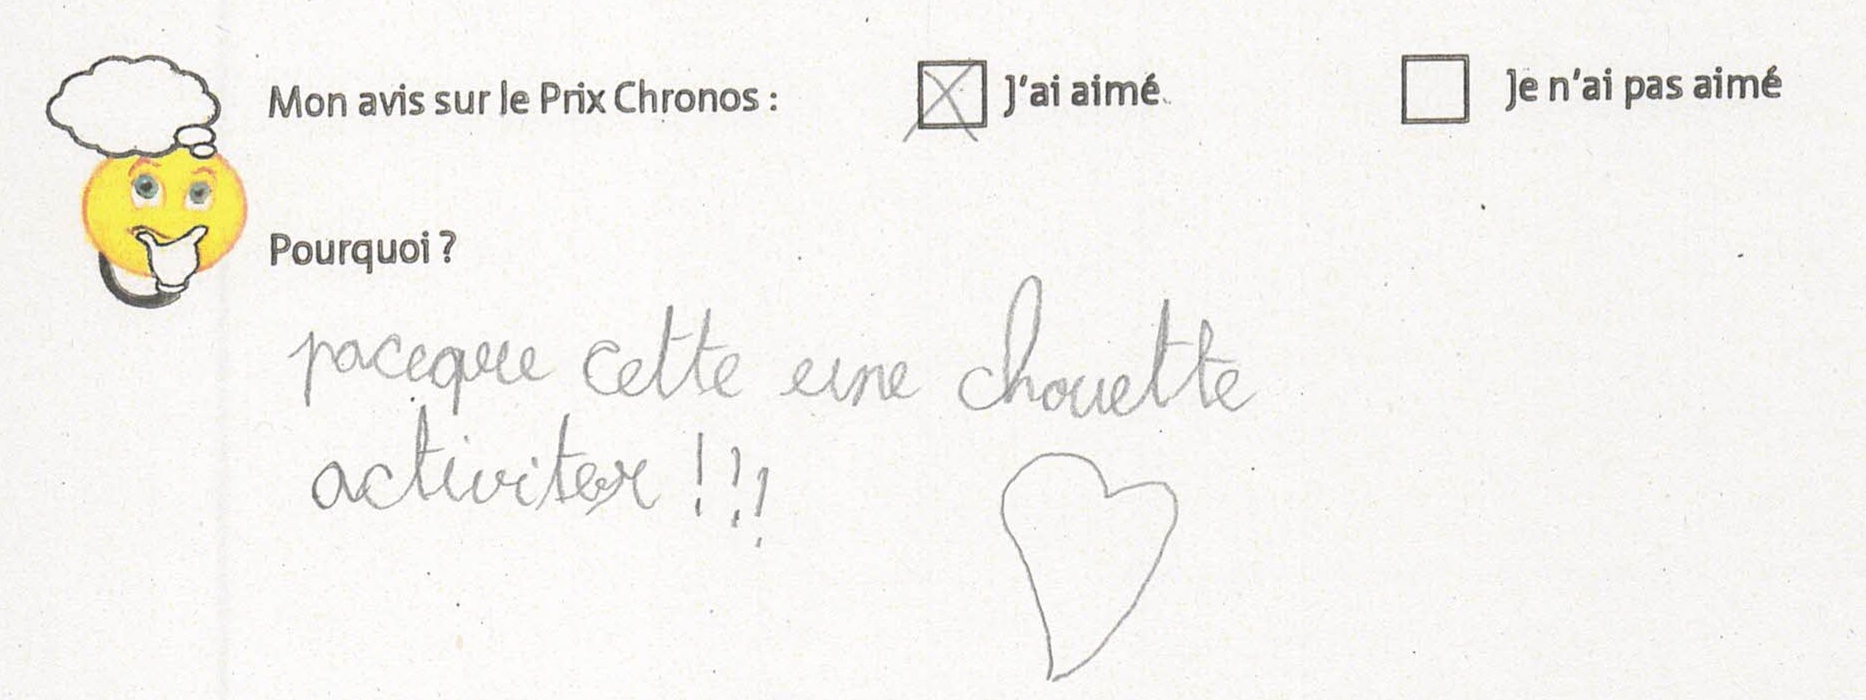 Mon avis sur le Prix Chronos : J'ai aimé. Je n'ai pas aimé
Pourquoi ?
paceque cette eune chouette
activiter !!!